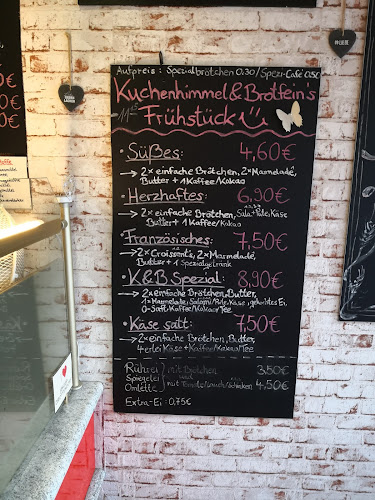 Aufpreis: Spezialbrötchen 0,30/Spezi-Café 0,5€
Kuchenhimmel & Brotfein's
-11⁴⁵ Frühstück
• Süßes: 4,60€
→ 2x einfache Brötchen, 2x Marmelade,
Butter + 1 Kaffee/Kakao
• Herzhaftes: 6,90€
→ 2x einfache Brötchen, Käse
Butter + 1 Kaffee/Kakao
• Französisches: 7,50€
→ 2x Croissants, 2x Marmelade,
Butter + 1 Spezialgetränk
• K&B Spezial: 8,90€
→ 2x einfache Brötchen, Butter,
1x Marmelade, Salami/Pute, Käse, gekochtes Ei,
O-Saft + Kaffee/Kakao/Tee
• Käse satt: 7,50€
→ 2x einfache Brötchen, Butter,
4erlei Käse + Kaffee/Kakao/Tee
Rührei mit Brötchen 3,50€
Spiegelei
Omlette mit 4,50€
Extra-Ei: 0,75€